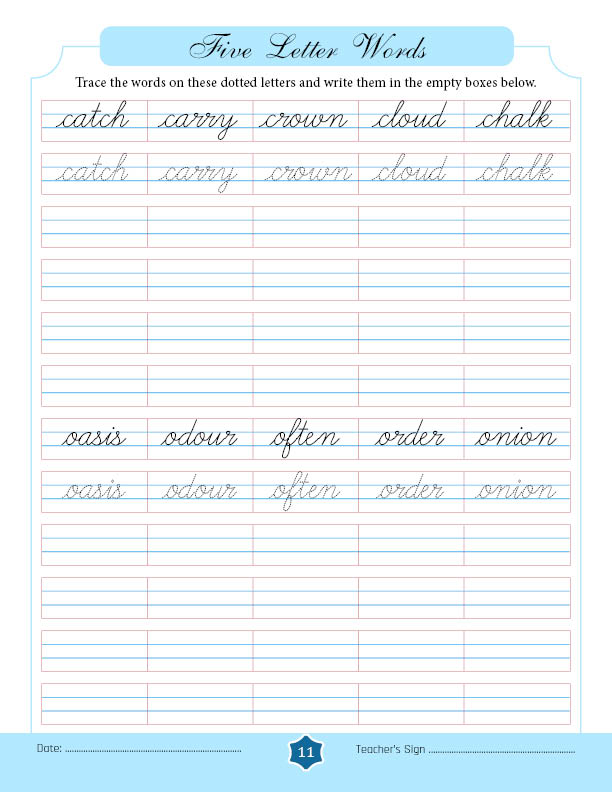 Five Letter Words
Trace the words on these dotted letters and write them in the empty boxes below.
catch carry crown cloud chalk
catch carry crown cloud chalk
oasis odour often order onion
oasis odour often order onion
Date: ........................................................... 11 Teacher's Sign .................................................